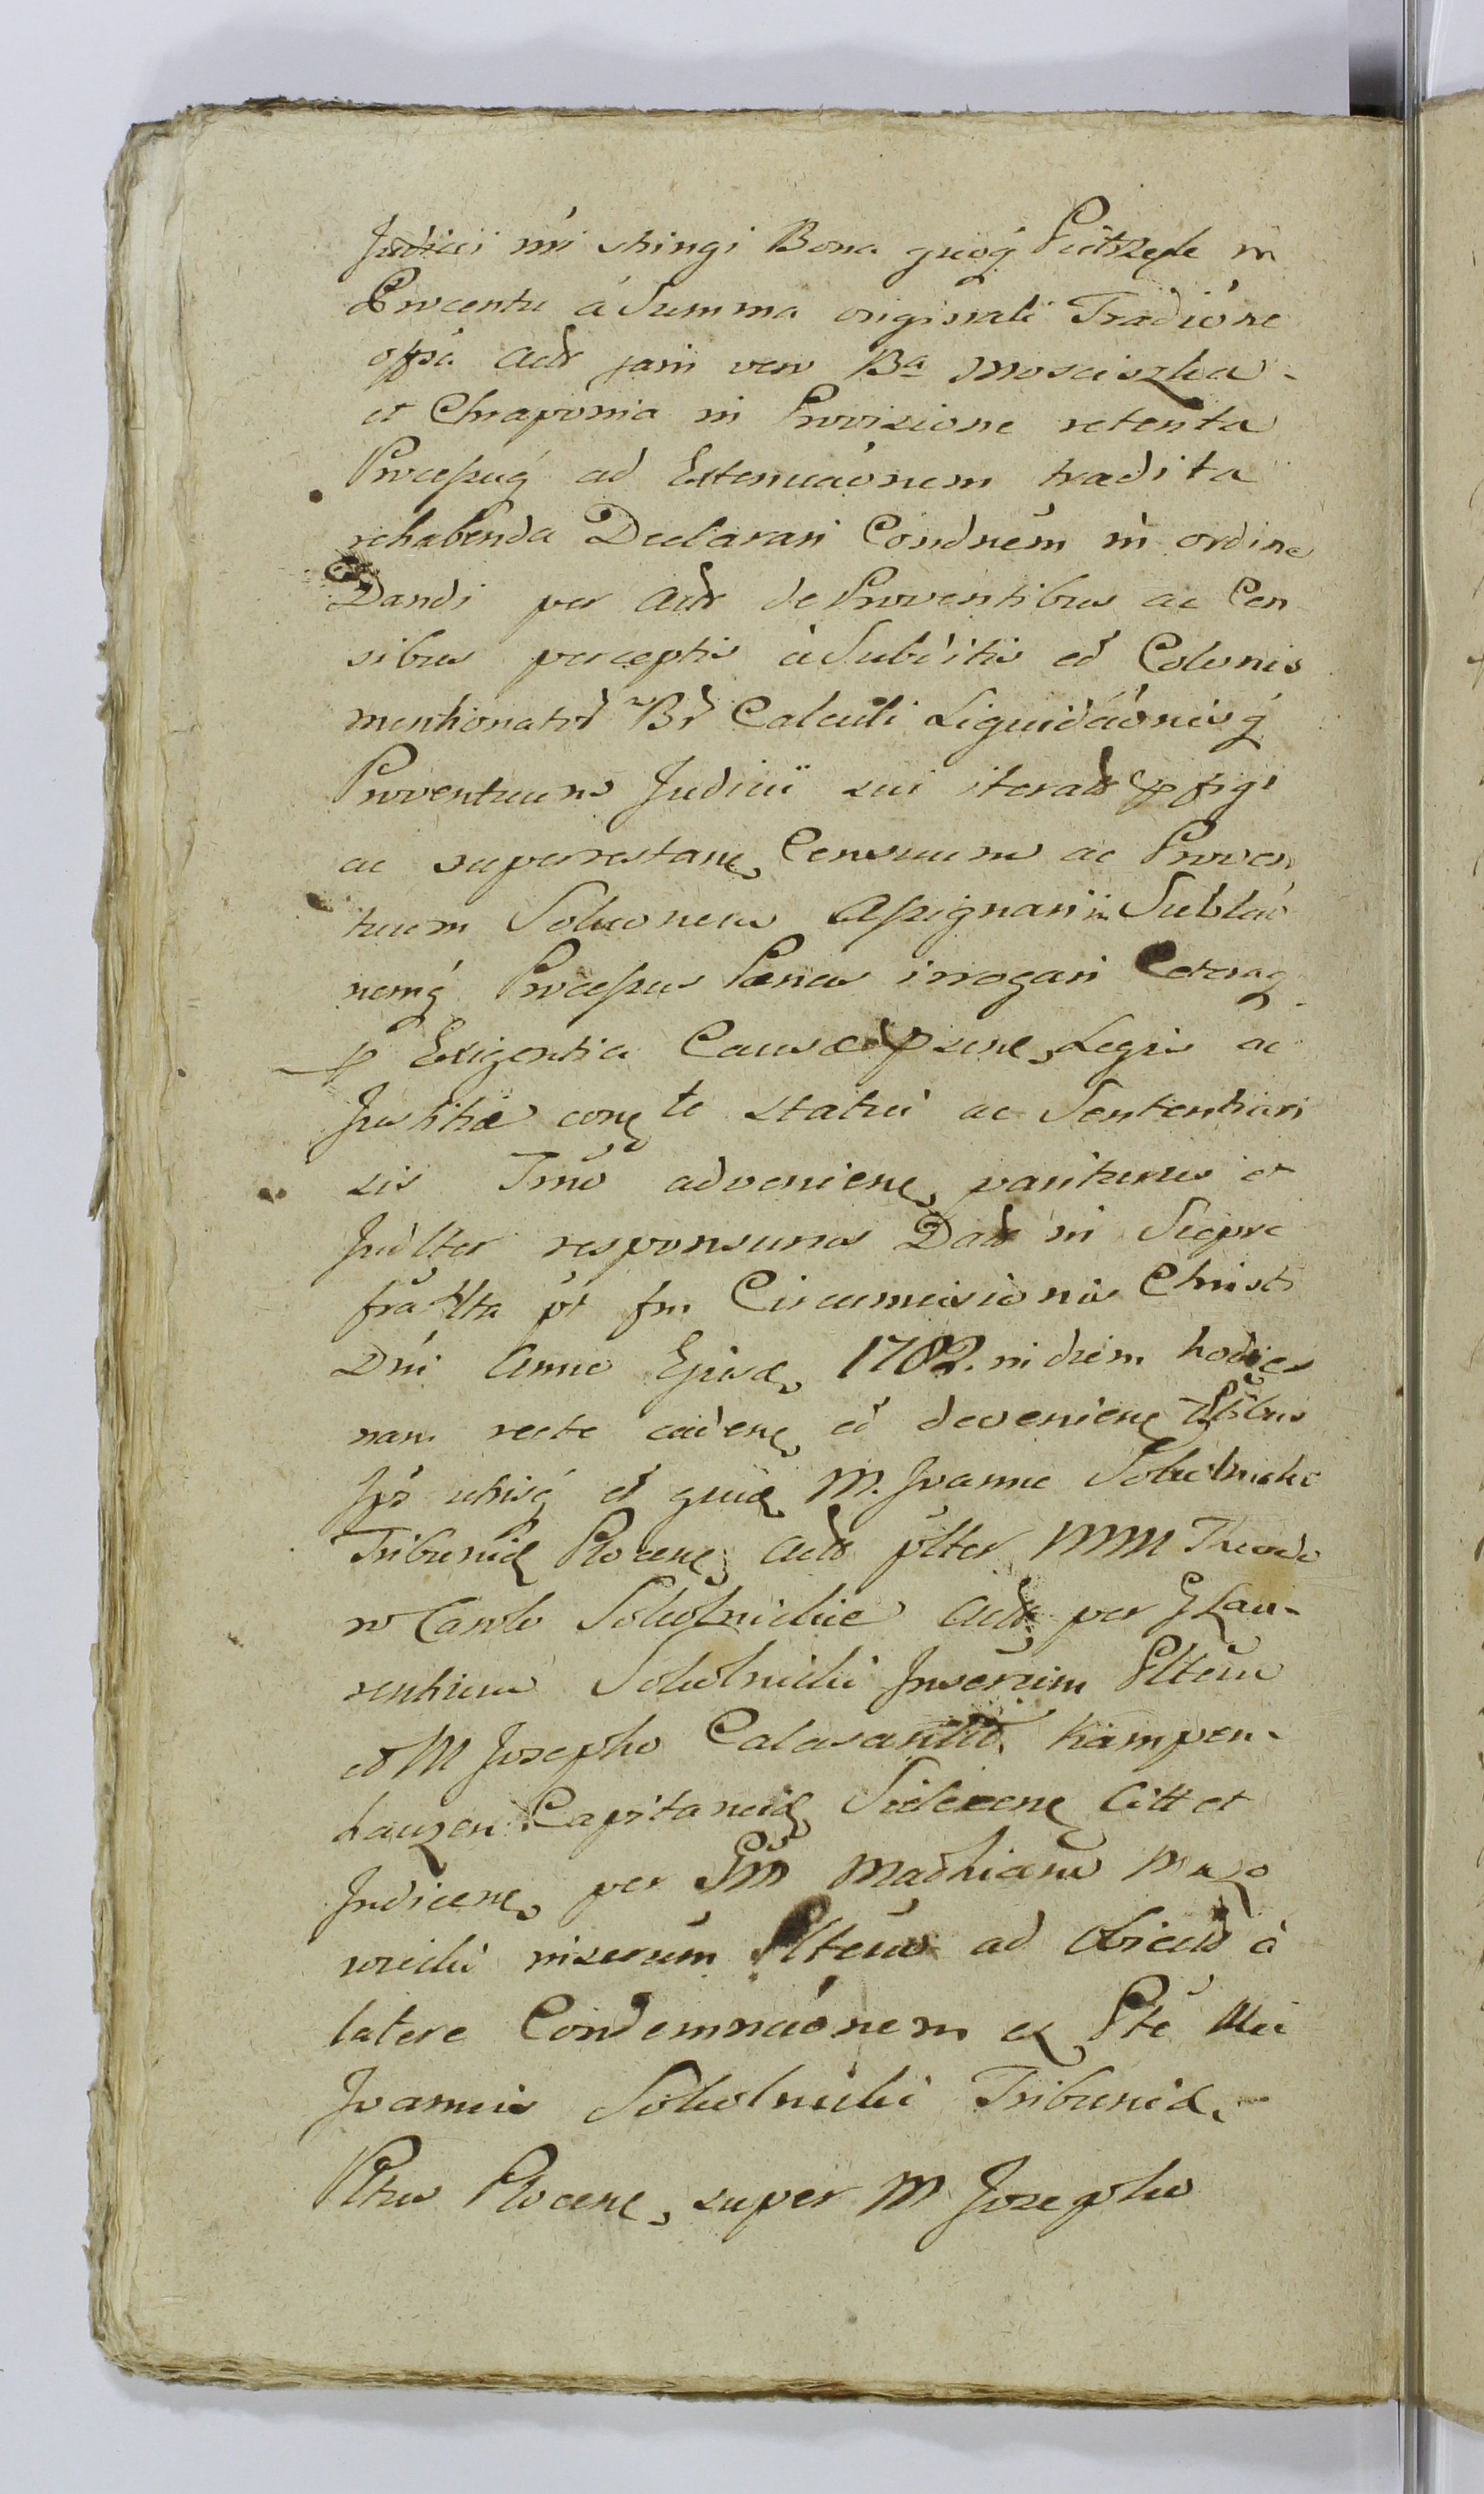 Judicii ni stringi Bona quoq́ Pietrzyle in
Procentu á Summa originali Tradióne
offsá Actr jam vero Bᵃ Mosciszka
et Chraponia in Provisione retenta
Processuq́ ad Extenuaónem tradita
rehabenda Declarari Condnem in ordine
Dandi per Actr de Proventibus ac Cen
sibus perceptis á Subditis et Colonis
mentionator Br Calculi Liquidaónisq́
Proventuum Judicii sui iterato pfigi
ac superrestan Censuum ac Proven
tuum Soluonem Assignari in Sublaó
nemq́ Processus Pœnas irrogari Ceteraq
p Exigentia Causæ Legis ac
Justitiæ te statui ac Sententiari
sis Tmó advenien pariturus et
Judlter responsuros in Sierpc
fra ltu pt fm Circumcisionis Christi
Dni Anno Ejusd 1782. in diem hodier
nam recte caden et devenien Ptibus
Ipś utrisq́ et M. Joanne Sokolnicki
Tribunid Plocen Actr plter MM Theodo
ro Carolo Sokolnickie Actr per G Lau-
rentium Sokolnicki Inserum Pltem
et M Josepho Calasantio Kampen-
hauzen Capitaneid Citt et
Judicen per GM Mathiam Mazo
wiecki inserum Pltem ad Obictr á
latere Condemnaónem ex Pte Mci
Joannis Sokolnicki Tribunid
Pltus Plocen super M Josepho